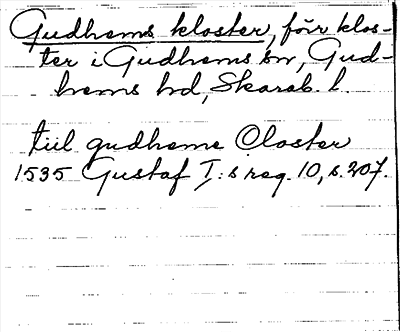 Gudhems kloster, förr klos-
ter i Gudhems sn, Gud-
hems hd, Skarab. l.
tiil gudheme Closter
1535 Gustaf I:s reg. 10, s. 207.